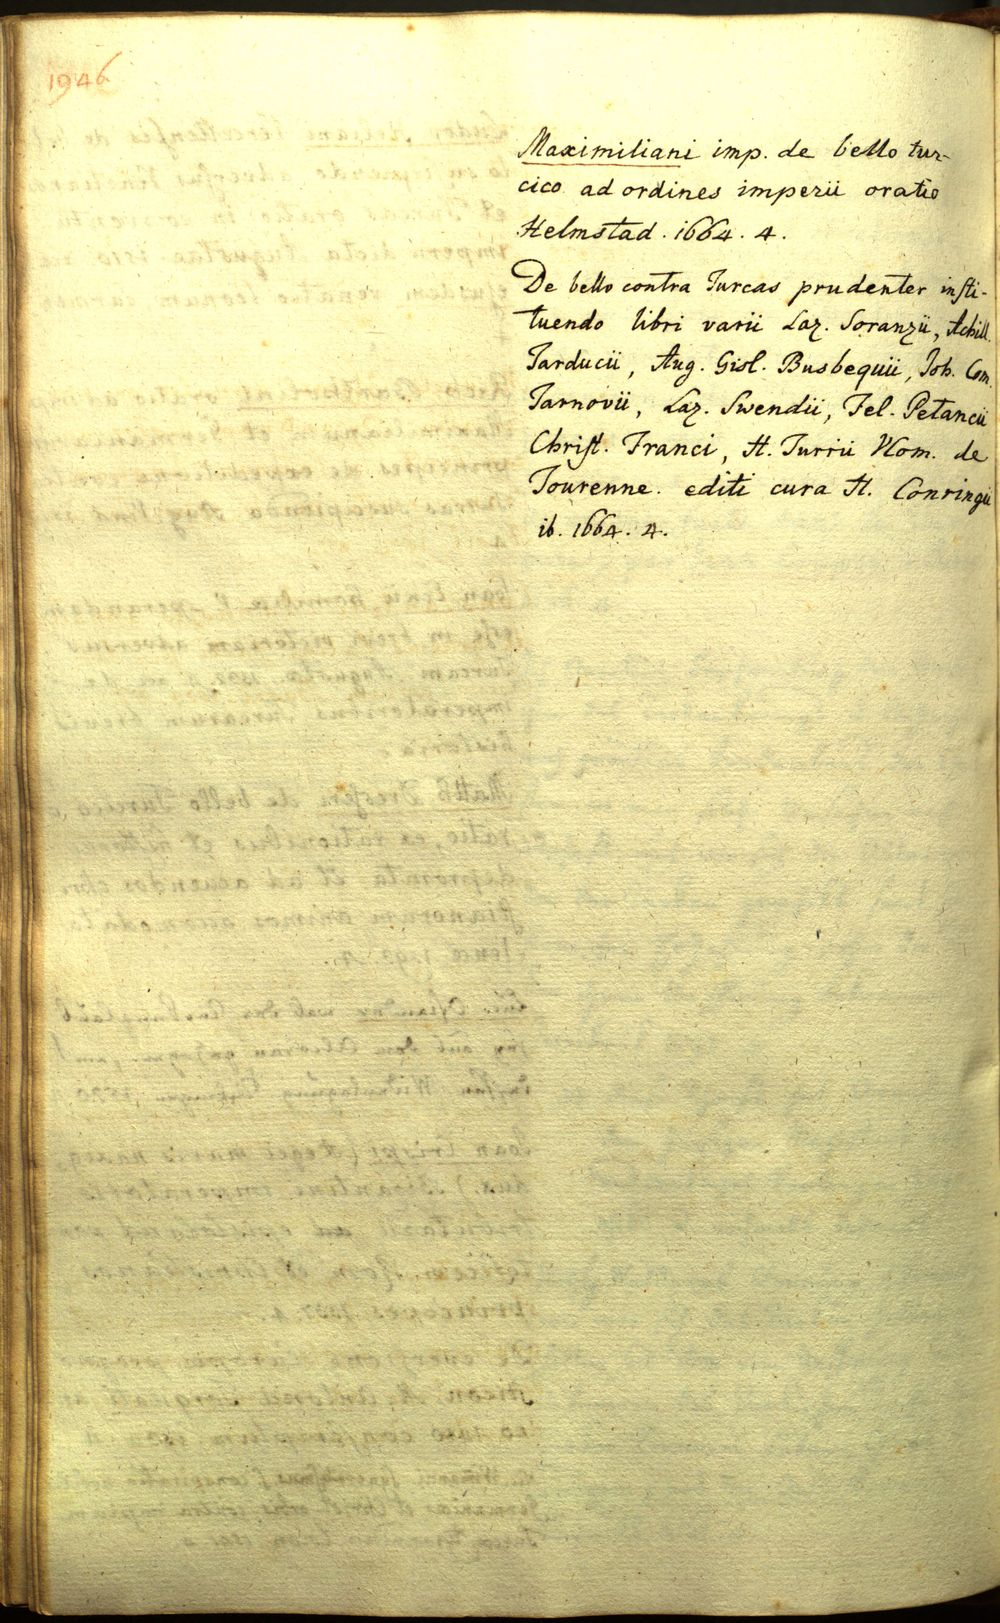 1946
Maximiliani imp. de bello tur-
cico ad ordines imperii oratio
Helmstad. 1664. 4.
De bello contra Turcas prudenter insti-
tuendo libri varii Laz. Soranzii, Achill.
Tarducii, Aug. Gisl. Busbequii, Joh. Com.
Tarnovii, Laz. Swendii, Fel. Petancii
Christ. Franci, H. Turrii Vicom. de
Tourenne. editi cura H. Conringii
ib. 1664. 4.